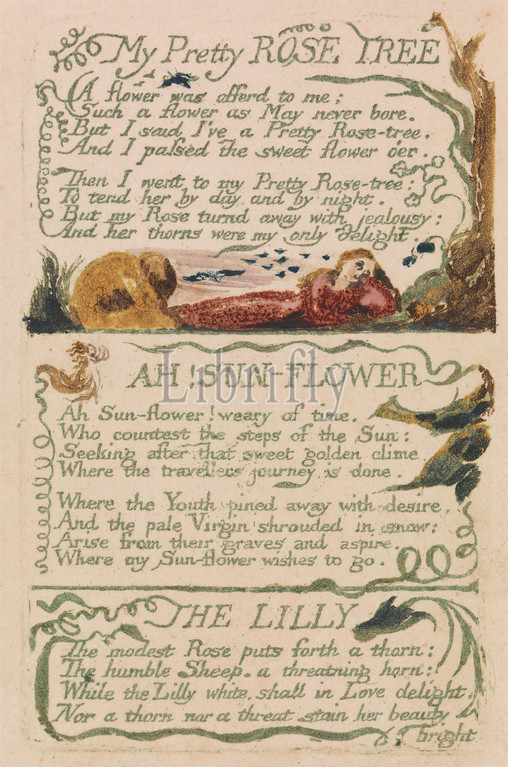 My Pretty ROSE TREE
A flower was offerd to me;
Such a flower as May never bore.
But I said, I've a Pretty Rose-tree.
And I passed the sweet flower o'er.
Then I went to my Pretty Rose-tree:
To tend her by day and by night.
But my Rose turnd away with jealousy:
And her thorns were my only delight.
AH! SUN-FLOWER
Ah Sun-flower! weary of time.
Who countest the steps of the Sun:
Seeking after that sweet golden clime
Where the travellers journey is done.
Where the Youth pined away with desire,
And the pale Virgin shrouded in snow:
Arise from their graves and aspire,
Where my Sun-flower wishes to go.
THE LILLY
The modest Rose puts forth a thorn:
The humble Sheep. a threatning horn:
While the Lilly white, shall in Love delight,
Nor a thorn nor a threat stain her beauty
bright